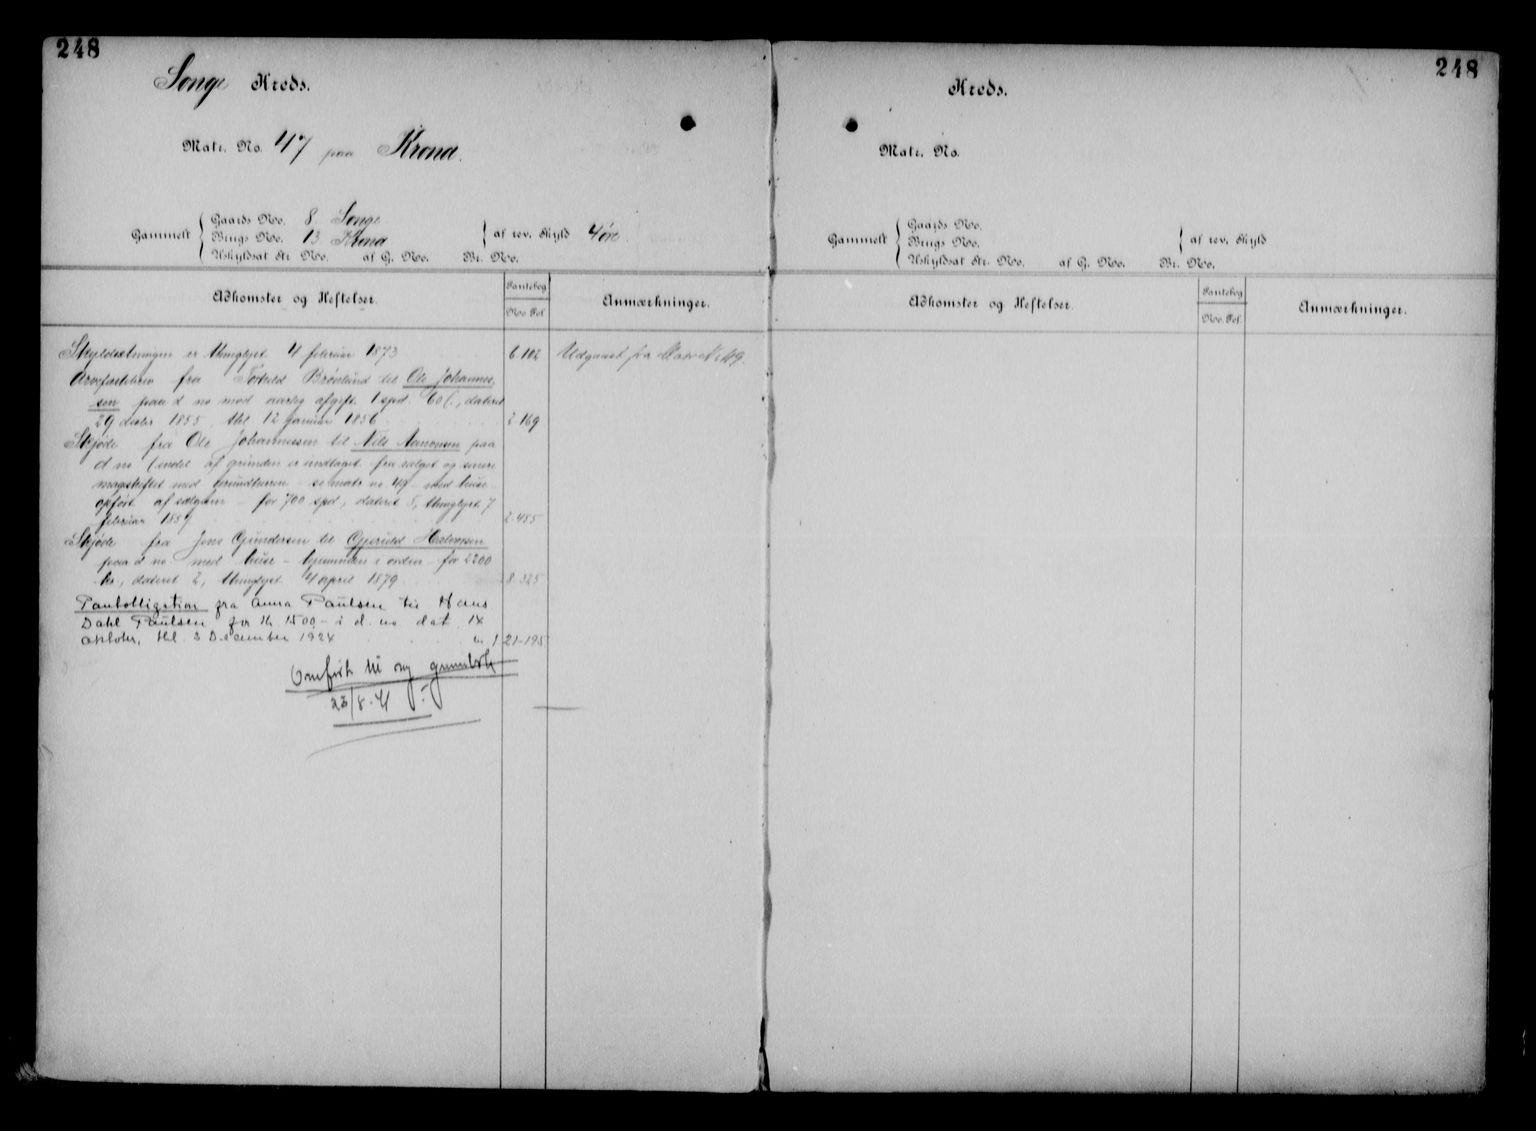 248
Songe Kreds.
Matr. No. 47 paa Krona.
Gammelt
Gaards No. 8 Songe
Brugs No. 13 Krona
Uskyldsat Str. No. af G. No. Br. No.
af rev. Skyld 4 öre.
Adkomster og Heftelser.
Pantebog
No. Fol.
Anmærkninger.
Skyldsætningen er thinglyst 4 februar 1873 6-102
Udgaaet fra Matr N 49.
Arvefæstebrev fra Brönlund til Ole Johannes-
sen paa d no mod aarlig afgift 1 spd. 60 ſ., dateret
29 decbr 1855, thl 12 januar 1856 2-169
Skjöde fra Ole Johannessen til Nils Aanonsen paa
d no (endel af grunden er indtaget fra salget og senere
mageskiftet med - se matr no 49 - med huse
opfört af sælgeren - for 700 spd, dateret 5, thinglyst 7
februar 1857 2-455
Skjöde fra Jens Gundersen til
paa d no med huse - i orden - for 2200
kr, dateret 2, thinglyst 4 april 1879 8-325
Pantobligation fra Anna Paulsen til Hans
Dahl Paulsen for kr 1500,- i d. no dat 14
oktober, thl. 3 December 1924 21-195
Omfört til ny grunnbok
23/8-41
248
Kreds.
Matr. No.
Gammelt
Gaards No.
Brugs No.
Uskyldsat Str. No. af G. No. Br. No.
af rev. Skyld
Adkomster og Heftelser.
Pantebog
No. Fol.
Anmærkninger.